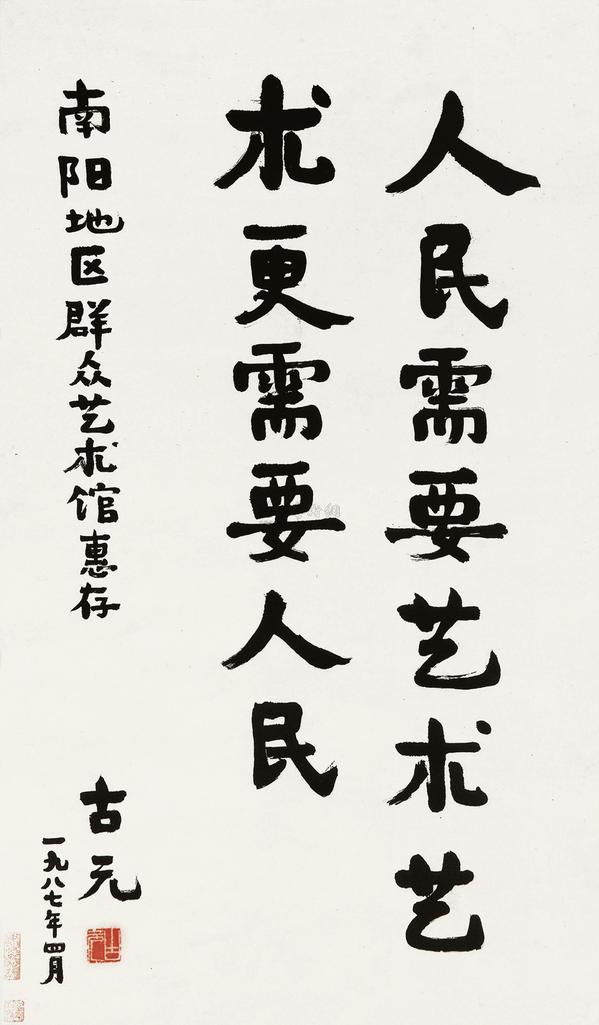 人民需要艺术艺
术更需要人民
南阳地区群众艺术馆惠存
古元
一九八七年四月